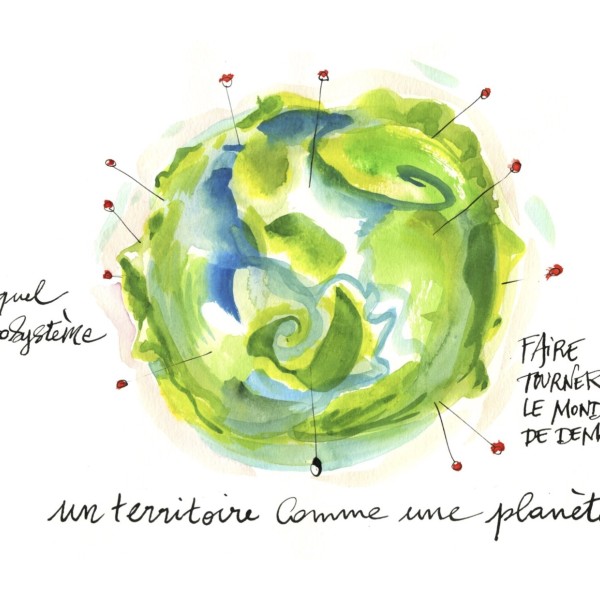 quel
osystème
FAIRE
TOURNER
LE MOND
DE DEM
un territoire comme une planète